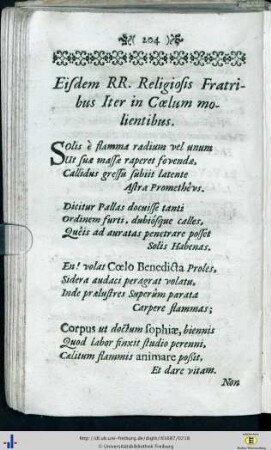 204
Eisdem RR. Religiosis Fratri-
bus Iter in Cœlum mo-
lientibus.
Solis è flamma radium vel unum
Ut suæ massæ raperet fovendæ,
Callidus gressu subiit latente
Astra Prometheus.
Dicitur Pallas docuisse tanti
Ordinem furti, dubiosque calles,
Quêis ad auratas penetrare posset
Solis Habenas.
En! volat Cœlo Benedicta Proles,
Sidera audaci peragrat volatu,
Inde prælustres Superûm parata
Carpere flammas;
Corpus ut doctum sophiæ, biennis
Quod labor finxit studio perenni,
Cælitum flammis animare possit,
Et dare vitam.
Non
http://dl.ub.uni-freiburg.de/diglit/
© Universitätsbibliothek Freiburg